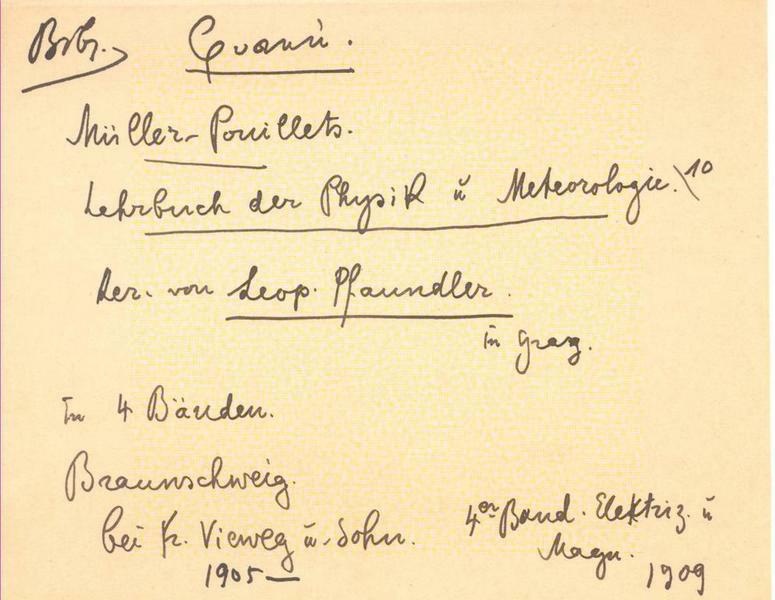 Müller-Pouillets.
Lehrbuch der Physik ü Meteorologie. 10
von Leop. Pfaundler.
in Graz.
In 4 Bänden.
Braunschweig.
bei Fr. Vieweg ü. Sohn.
1905—
4er Band. Elektriz. ü
Magn.
1909